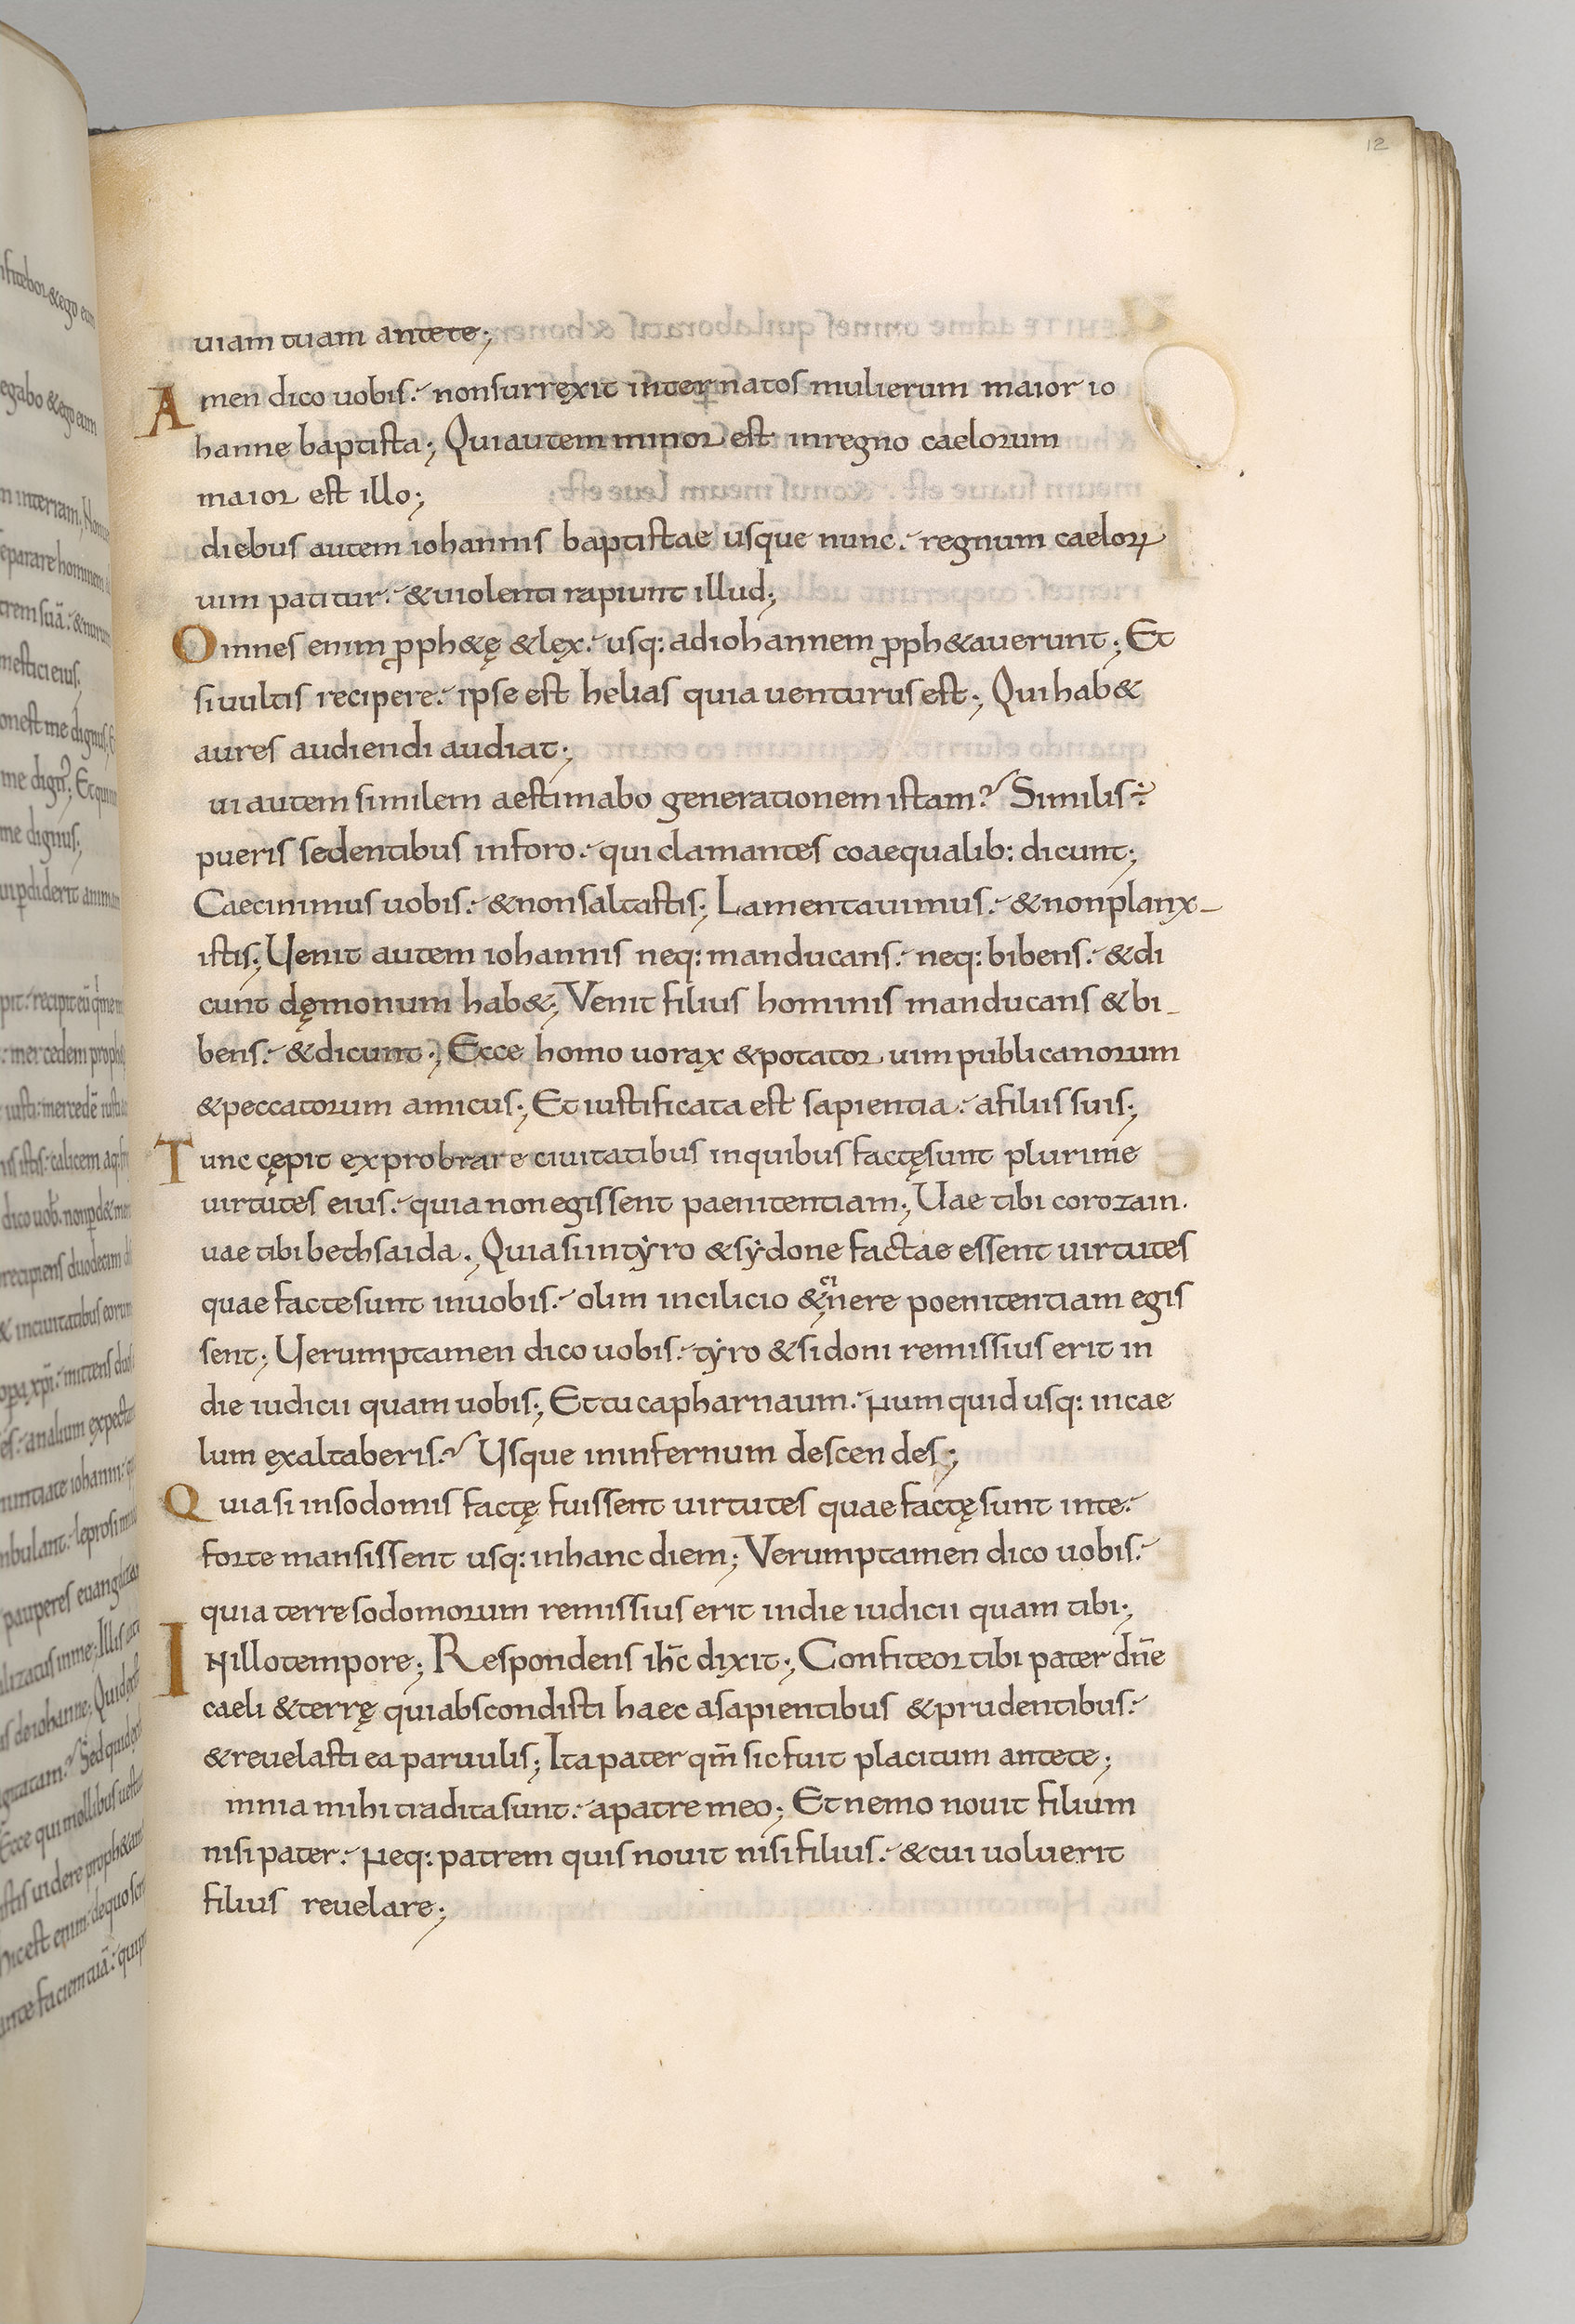 12
uiam tuam ante te;
Amen dico uobis. nonsurrexit internatos mulierum maior io
hanne baptista; Quiautem minor est inregno caelorum
maior est illo;
diebus autem iohannis baptistae usque nunc. regnum caeloꝝ
uim patitur. &uiolenti rapiunt illud;
Omnes enim pph&ę &lex. usq: adiohannem pph&auerunt; Et
siuultis recipere. ipse est helias quia uenturus est; Qui hab&
aures audiendi audiat;
ui autem similem aestimabo generationem istam? Similis ÷
pueris sedentibus inforo. qui clamantes coaequalib: dicunt;
Caecinimus uobis. &nonsaltastis; Lamentauimus. &nonplanx-
istis; Uenit autem iohannis neq: manducans. neq: bibens. &di
cunt dęmonum hab&; Venit filius hominis manducans &bi-
bens. &dicunt; Ecce homo uorax &potator uim publicanorum
&peccatorum amicus; Et iustificata est sapientia. afiliis suis;
Tunc cępit exprobrare ciuitatibus inquibus factęsunt plurime
uirtutes eius. quia non egissent paenitentiam; Uae tibi corozain.
uae tibi bethsaida; Quiasiintẏro &sẏdone factae essent uirtutes
quae factesunt inuobis. olim incilicio &cinere poenitentiam egis
sent; Uerumptamen dico uobis. tẏro &sidoni remissius erit in
die iudicii quam uobis; Ettu capharnaum. Numquid usq: incae
lum exaltaberis? Usque ininfernum descendes;
Quia si insodomis factę fuissent uirtutes quae factęsunt inte.
forte mansissent usq: inhanc diem; Verumptamen dico uobis.
quia terre sodomorum remissius erit indie iudicii quam tibi;
INillotempore; Respondens ih̄c dixit; Confiteor tibi pater dn̄e
caeli &terrę quiabscondisti haec asapientibus &prudentibus.
&reuelasti ea paruulis; Ita pater qm̄ sic fuit placitum ante te;
mnia mihi traditasunt. apatre meo; Et nemo nouit filium
nisi pater. Neq: patrem quis nouit nisi filius. &cui uoluerit
filius reuelare;